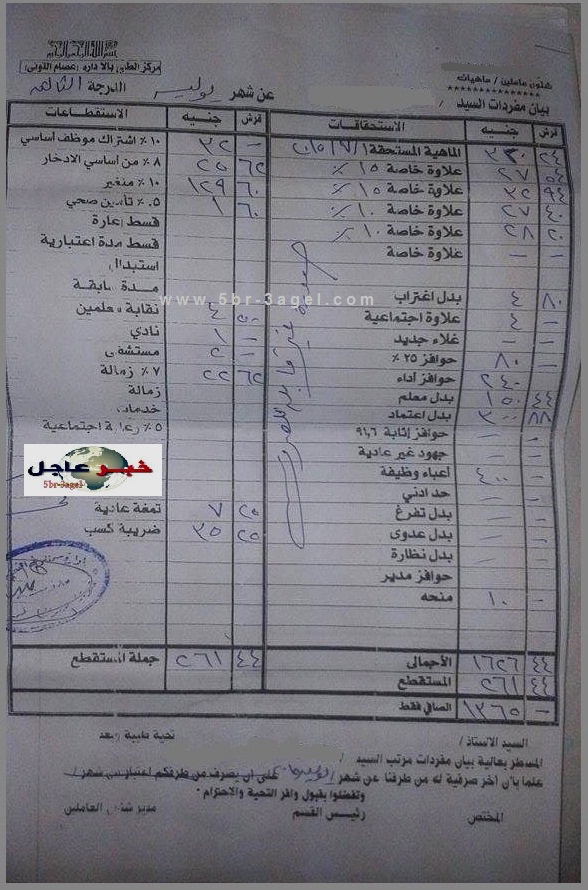 شئون عاملين / ماهيات
الدرجة الثالثه
عن شهر يوليو
بيان مفردات السيد /
قرش جنيه الاستحقاقات قرش جنيه الاستقطاعات
٢٤ ٣٣٠ الماهية المستحقة ٢٠١٥/٧/١ – ٣٢ ١٠٪ اشتراك موظف أساسي
٥٤ ٢٧ علاوة خاصة ١٥ ٪ ٦٢ ٢٥ ٨٪ من اساسي الادخار
٩٤ ٣٢ علاوة خاصة ١٥ ٪ ٦٠ ١٢٩ ١٠٪ متغير
٤٠ ٢٧ علاوة خاصة ١٠ ٪ ٦٠ ١ ٥.٪ تأمين صحي
٢٠ ٢٨ علاوة خاصة ١٠ ٪ قسط إعارة
– – علاوة خاصة قسط مدة اعتبارية
استبدال
مدة سابقة
www.5br-3agel.com
٨٠ ٤ بدل اغتراب
– ٤ علاوة اجتماعية ٥٠ ٤ نقابة معلمين
– – غلاء جديد – ١ نادي
– ٨٠ حوافز ٢٥٪ – ٢ مستشفى
٢٤٠ حوافز أداء ٦٢ ٢٢ ٧٪ زمالة
٤٤ ١٥٠ بدل معلم زمالة
٨٨ ٣٠٠ بدل اعتماد خدمات
حوافز إثابة ٩١,٦ ٥٪ رعاية اجتماعية
جهود غير عادية
خبر عاجل
5br-3agel.com
– ٤٠٠ أعباء وظيفة
حد ادني
بدل تفرغ ٢٥ ٧ تمغة عادية
بدل عدوى ٢٥ ٣٥ ضريبة كسب
بدل نظارة
حوافز مدير
– ١٠ منحه
٤٤ ١٦٢٦ الأجمالى ٤٤ ٢٦١ جملة المستقطع
٤٤ ٢٦١ المستقطع
– ١٣٦٥ الصافي فقط
السيد الاستاذ / تحية طيبة وبعد
المسطر بعالية بيان مفردات مرتب السيد /
علما بأن آخر صرفية له من طرفنا عن شهر على ان يصرف من طرفكم اعتبارا من شهر /
وتفضلوا بقبول وافر التحية والاحترام ،
المختص رئيس القسم مدير شئون العاملين